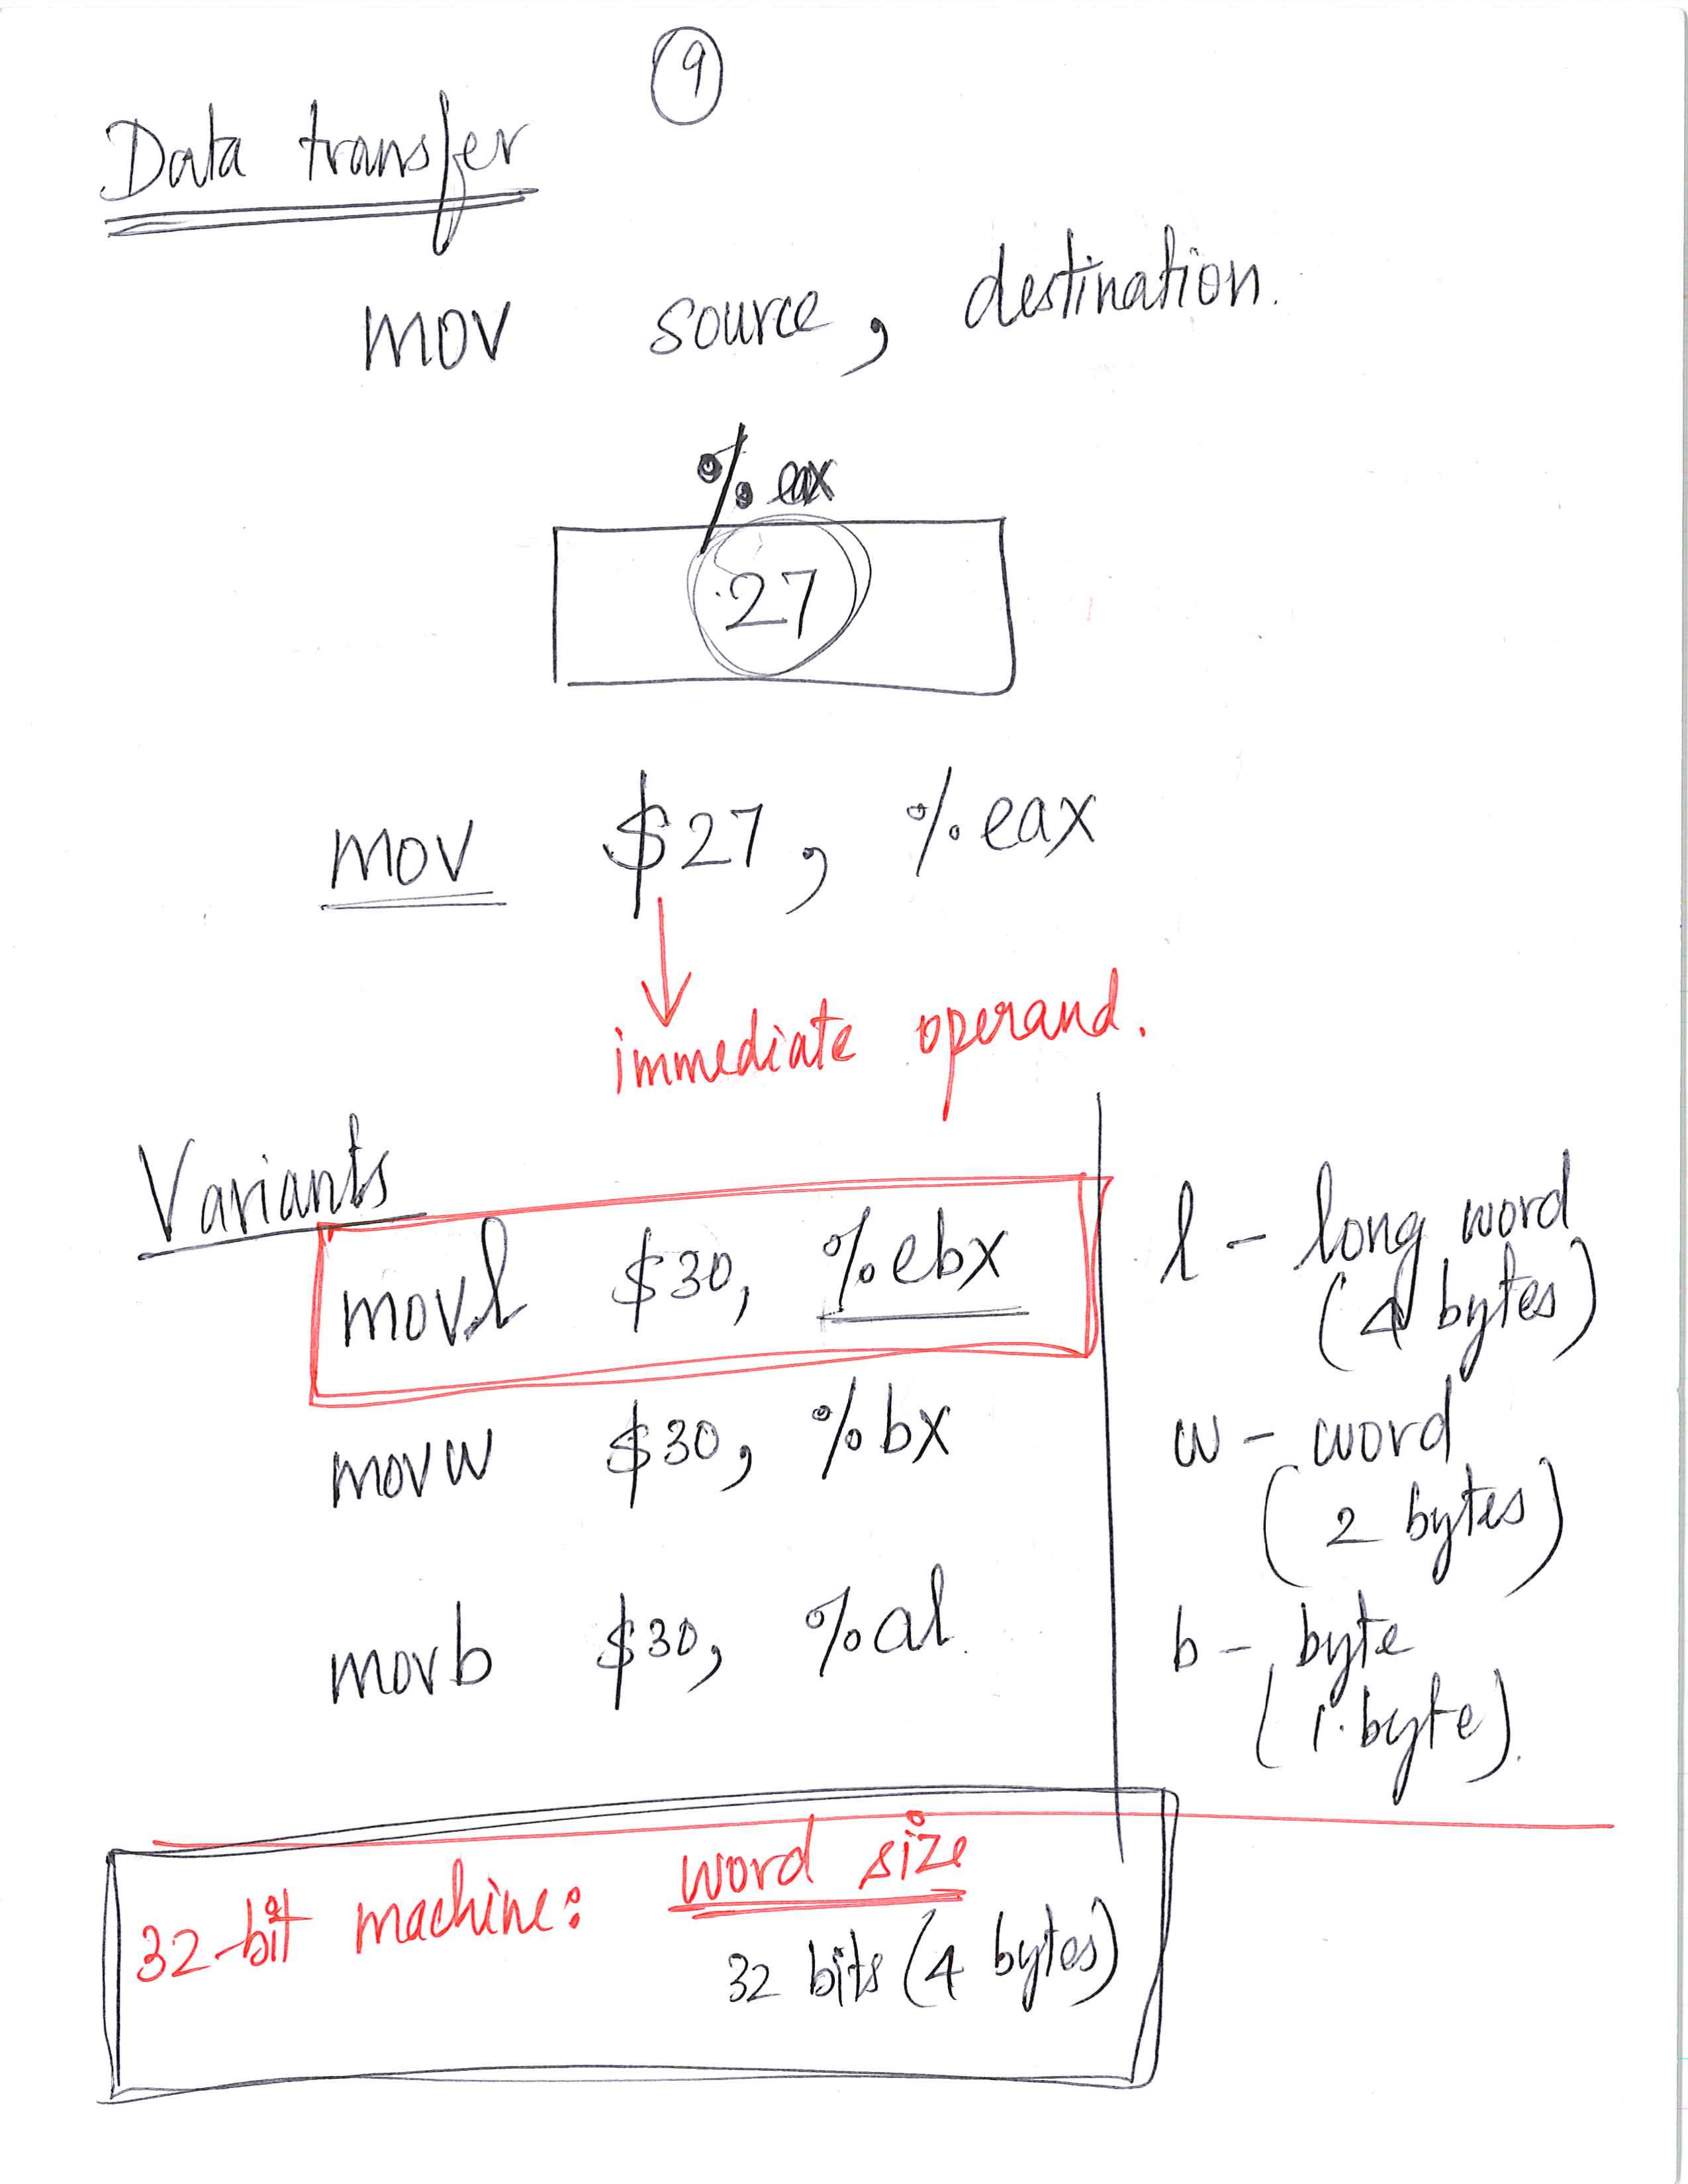 9
Data transfer
mov source, destination.
%eax
27
mov $27, %eax
immediate operand.
Variants
movl $30, %ebx
l - long word
(4 bytes)
movw $30, %bx
w - word
(2 bytes)
movb $30, %al
b - byte
(1 byte).
32-bit machine: word size
32 bits (4 bytes)